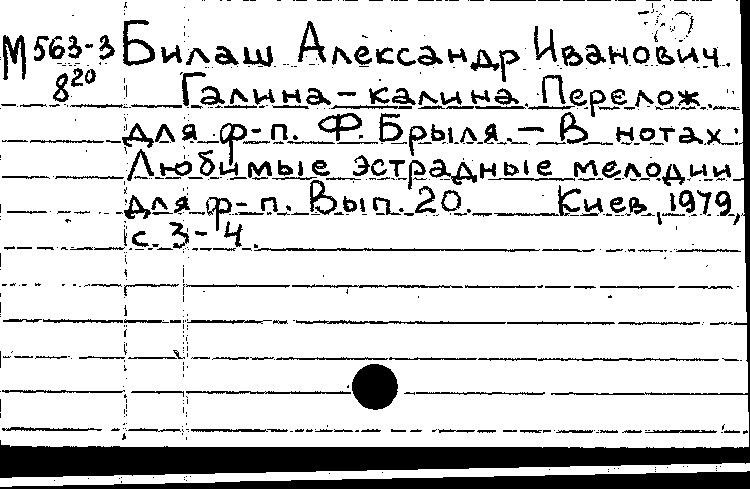 М 563-3 Билаш Александр Иванович.
8 20 Галина-калина. Перелож.
для ф-п. Ф. Брыля. — В нотах:
Любимые эстрадные мелодии
для ф-п. Вып. 20. Киев, 1979,
с. 3-4.